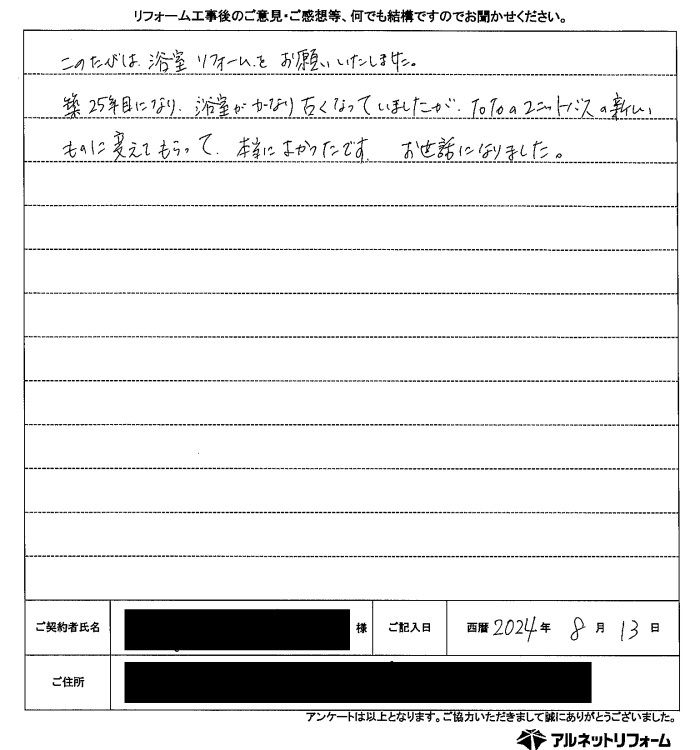 リフォーム工事後のご意見・ご感想等、何でも結構ですのでお聞かせください。
このたびは、浴室リフォームをお願いいたしました。
築25年目になり、浴室がかなり古くなっていましたが、TOTOのユニットバスの新しい
ものに変えてもらって、本当によかったです。 お世話になりました。
ご契約者氏名 様 ご記入日 西暦 2024 年 8 月 13 日
ご住所
アンケートは以上となります。ご協力いただきまして誠にありがとうございました。
アルネットリフォーム